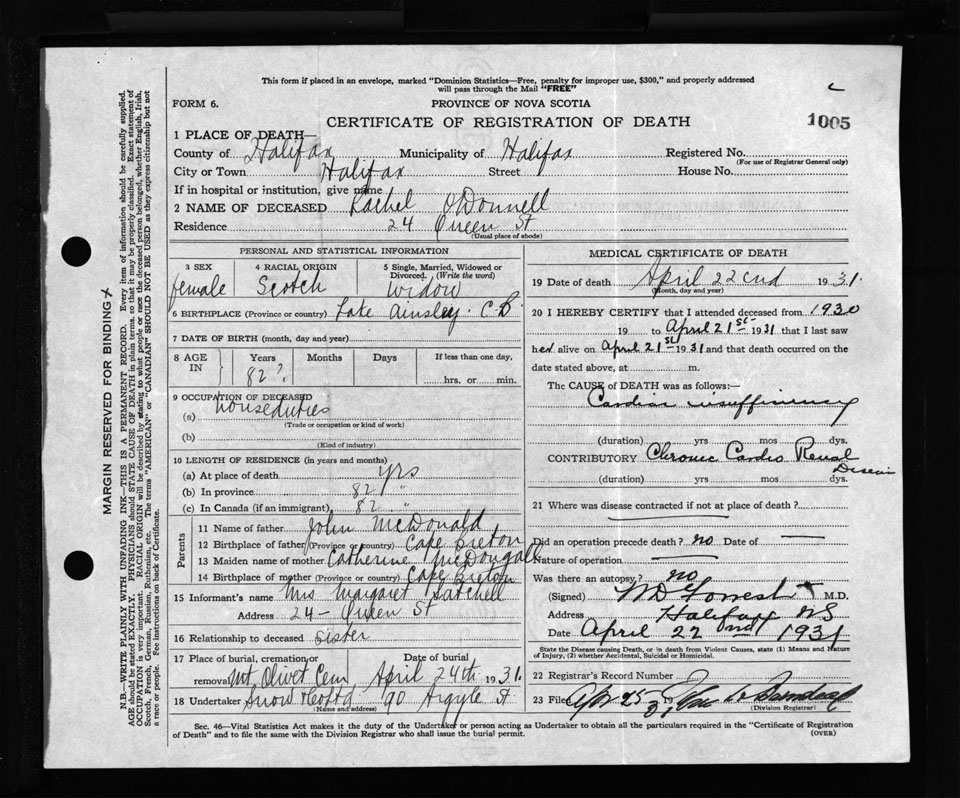 This form if placed in an envelope, marked "Dominion Statistics—Free, penalty for improper use, $300," and properly addressed
will pass through the Mail "FREE"
FORM 6.
PROVINCE OF NOVA SCOTIA
CERTIFICATE OF REGISTRATION OF DEATH
1005
1 PLACE OF DEATH—
County of Halifax Municipality of Halifax Registered No.
(For use of Registrar General only)
City or Town Halifax Street House No.
If in hospital or institution, give name
2 NAME OF DECEASED Rachel O'Donnell
Residence 24 Queen St
(Usual place of abode)
PERSONAL AND STATISTICAL INFORMATION
3 SEX 4 RACIAL ORIGIN 5 Single, Married, Widowed or Divorced. (Write the word)
female Scotch widow
6 BIRTHPLACE (Province or country) Lake Ainsley. C B
7 DATE OF BIRTH (month, day and year)
8 AGE IN Years Months Days If less than one day,
82? hrs. or min.
9 OCCUPATION OF DECEASED
(a) houseduties
(Trade or occupation or kind of work)
(b)
(Kind of industry)
10 LENGTH OF RESIDENCE (in years and months)
(a) At place of death yrs
(b) In province 82 "
(c) In Canada (if an immigrant) 82 "
Parents
11 Name of father John McDonald
12 Birthplace of father (Province or country) Cape Breton
13 Maiden name of mother Catherine McDougall
14 Birthplace of mother (Province or country) Cape Breton
15 Informant's name Mrs Margaret Satchell
Address 24 - Queen St
16 Relationship to deceased Sister
17 Place of burial, cremation or removal Mt Olivet Cem Date of burial April 24th 1931
18 Undertaker Snow 90 Argyle St
(Name and address)
MEDICAL CERTIFICATE OF DEATH
19 Date of death April 22cnd 1931.
(Month, day and year)
20 I HEREBY CERTIFY that I attended deceased from 1930
19 to April 21st 1931 that I last saw
her alive on April 21st 1931 and that death occurred on the
date stated above, at m.
The CAUSE of DEATH was as follows:—
Cardiac insufficiency
(duration) yrs mos dys.
CONTRIBUTORY Chronic Cardio Renal
Disease
(duration) yrs. mos. dys.
21 Where was disease contracted if not at place of death?
Did an operation precede death? no Date of —
Nature of operation —
Was there an autopsy? no
(Signed) W D Forrest M.D.
Address Halifax NS
Date April 22nd 1931
State the Disease causing Death, or in death from Violent Causes, state (1) Means and Nature
of Injury, (2) whether Accidental, Suicidal or Homicidal.
22 Registrar's Record Number
23 Filed Apr 25 19 31
(Division Registrar)
Sec. 46—Vital Statistics Act makes it the duty of the Undertaker or person acting as Undertaker to obtain all the particulars required in the "Certificate of Registration
of Death" and to file the same with the Division Registrar who shall issue the burial permit.
(OVER)
MARGIN RESERVED FOR BINDING
N.B.—WRITE PLAINLY WITH UNFADING INK—THIS IS A PERMANENT RECORD. Every item of information should be carefully supplied.
AGE should be stated EXACTLY. PHYSICIANS should STATE CAUSE OF DEATH in plain terms, so that it may be properly classified. Exact statement of
OCCUPATION is very important. RACIAL ORIGIN will be described by stating to what people or race the deceased person belonged, whether English, Irish,
Scotch, French, German, Russian, Ruthenian, etc. The terms "AMERICAN" or "CANADIAN" SHOULD NOT BE USED as they express citizenship but not
a race or people. See instructions on back of Certificate.